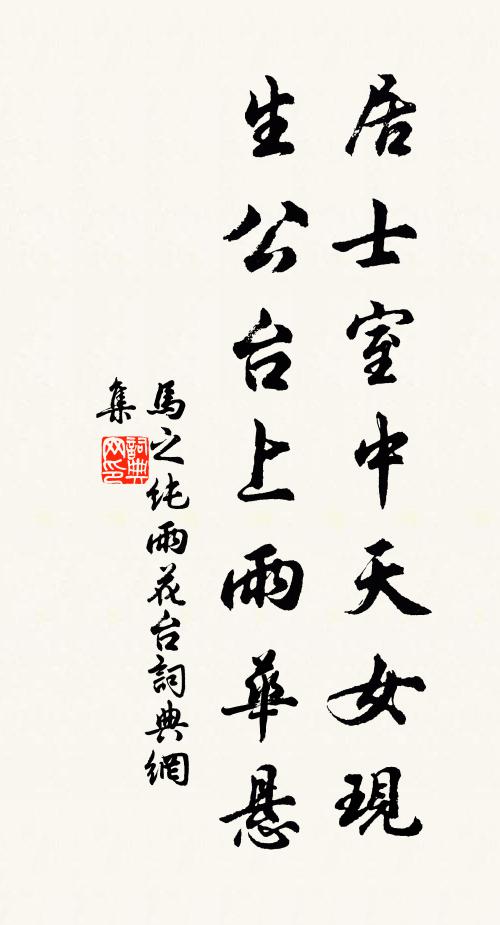 居士室中天女現
生公台上雨華懸
馬之純雨花台詞典網
集
詞典网印